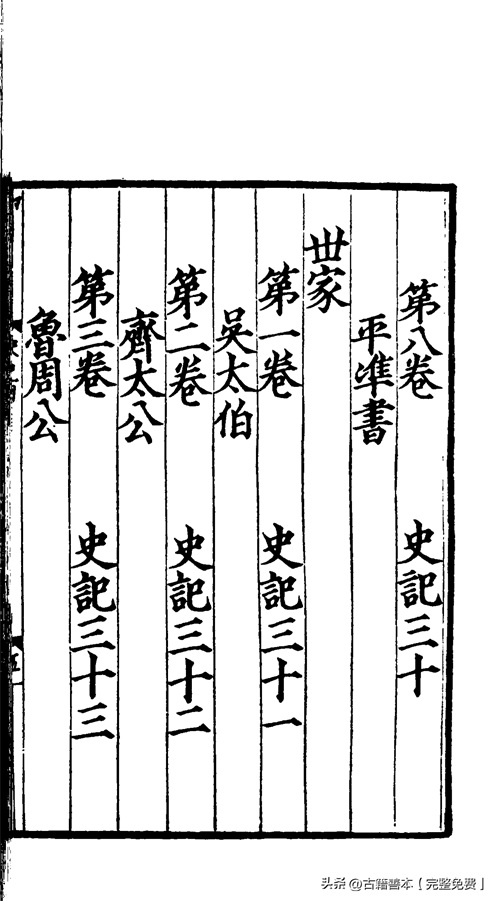 第八卷 史記三十
平準書
世家
第一卷 史記三十一
吳太伯
第二卷 史記三十二
齊太公
第三卷 史記三十三
魯周公
五
头条 @古籍善本【完整免费】